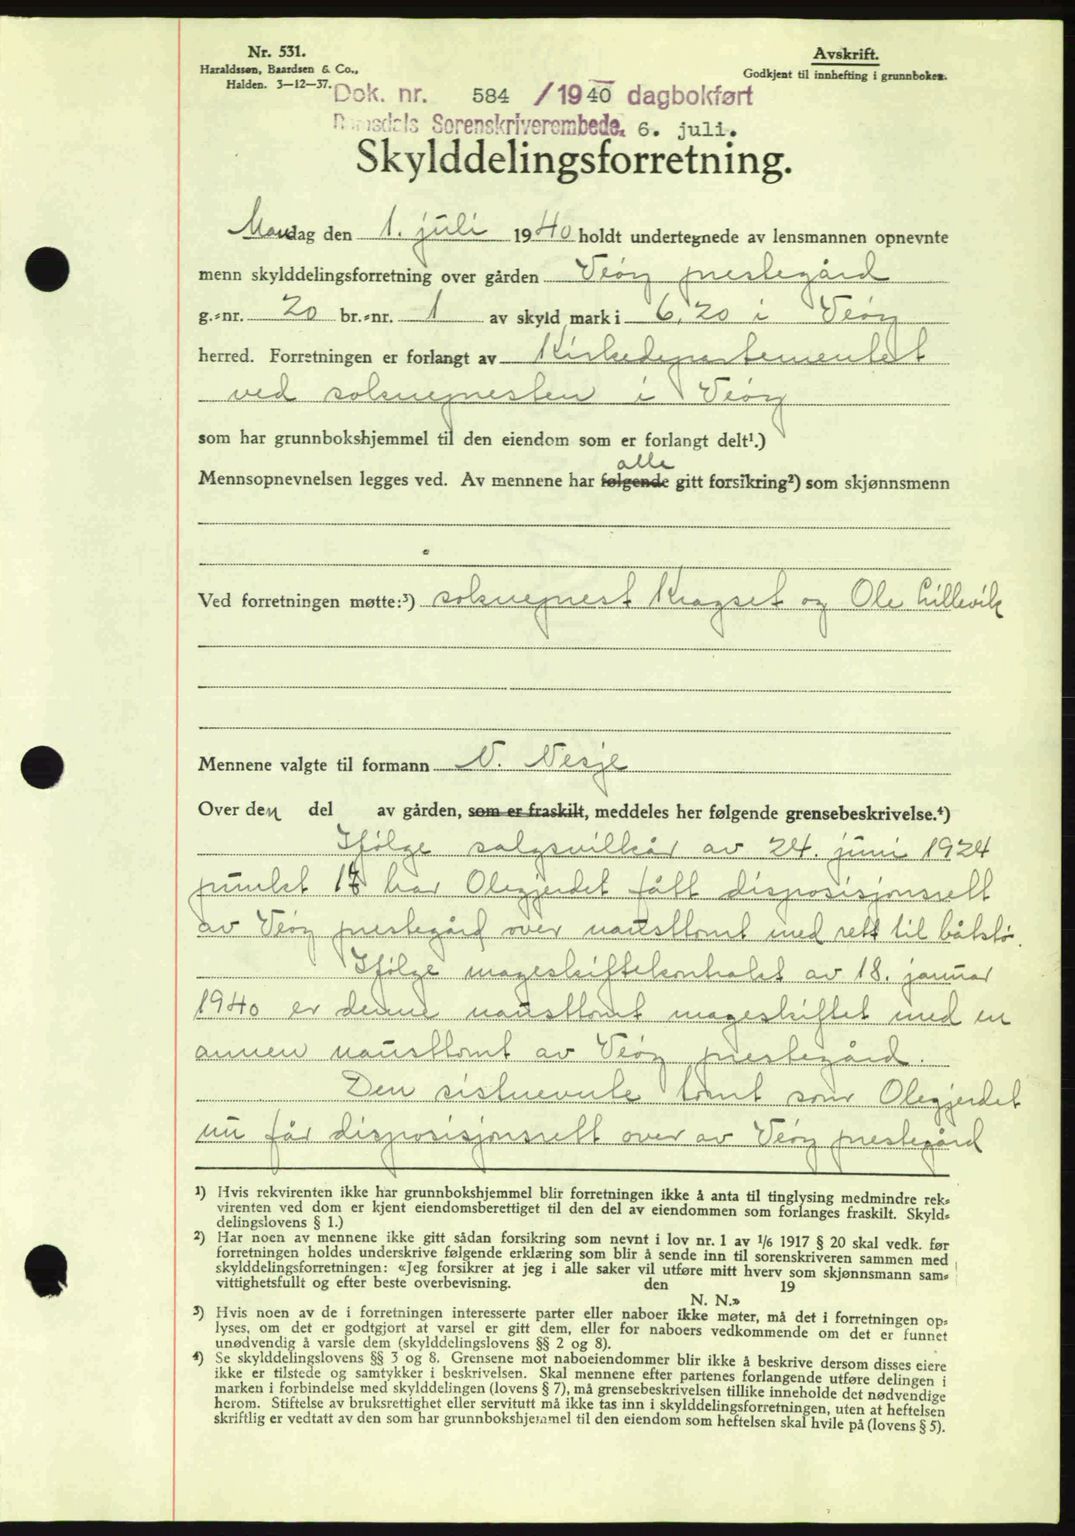 Nr. 531.
Haraldssøn, Baardsen & Co.,
Halden. 3—12—37.
Avskrift.
Godkjent til innhefting i grunnboken.
Dok. nr. 584 /1940 dagbokført
Romsdals Sorenskriverembede. 6. juli.
Skylddelingsforretning.
Mandag den 1. juli 1940 holdt undertegnede av lensmannen opnevnte
menn skylddelingsforretning over gården Veøy prestegård
g.-nr. 20 br.-nr. 1 av skyld mark i 6,20 i Veøy
herred. Forretningen er forlangt av Kirkedepartementet
ved soknepresten i Veøy
som har grunnbokshjemmel til den eiendom som er forlangt delt¹.)
alle
Mennsopnevnelsen legges ved. Av mennene har følgende gitt forsikring²) som skjønnsmenn
Ved forretningen møtte:³) sokneprest Kragset og Ole Lillevik
Mennene valgte til formann N. Nesje
Over den del av gården, som er fraskilt, meddeles her følgende grensebeskrivelse.⁴)
Ifølge salgsvilkår av 24. juni 1924
punkt 18 har Olegjerdet fått disposisjonsrett
av Veøy prestegård over nausttomt med rett til båtstø.
Ifølge mageskiftekontrakt av 18. januar
1940 er denne nausttomt mageskiftet med en
annen nausttomt av Veøy prestegård.
Den sistnevnte tomt som Olegjerdet
nu får disposisjonsrett over av Veøy prestegård
¹) Hvis rekvirenten ikke har grunnbokshjemmel blir forretningen ikke å anta til tinglysing medmindre rek-
virenten ved dom er kjent eiendomsberettiget til den del av eiendommen som forlanges fraskilt. Skyld-
delingslovens § 1.)
²) Har noen av mennene ikke gitt sådan forsikring som nevnt i lov nr. 1 av 1/6 1917 § 20 skal vedk. før
forretningen holdes underskrive følgende erklæring som blir å sende inn til sorenskriveren sammen med
skylddelingsforretningen: «Jeg forsikrer at jeg i alle saker vil utføre mitt hverv som skjønnsmann sam-
vittighetsfullt og efter beste overbevisning. den 19
N. N.»
³) Hvis noen av de i forretningen interesserte parter eller naboer ikke møter, må det i forretningen op-
lyses, om det er godtgjort at varsel er gitt dem, eller for naboers vedkommende om det er funnet
unødvendig å varsle dem (skylddelingslovens §§ 2 og 8).
⁴) Se skylddelingslovens §§ 3 og 8. Grensene mot naboeiendommer blir ikke å beskrive dersom disses eiere
ikke er tilstede og samtykker i beskrivelsen. Skal mennene efter partenes forlangende utføre delingen i
marken i forbindelse med skylddelingen (lovens § 7), må grensebeskrivelsen tillike inneholde det nødvendige
herom. Stiftelse av bruksrettighet eller servitutt må ikke tas inn i skylddelingsforretningen, uten at heftelsen
skriftlig er vedtatt av den som har grunnbokshjemmel til den eiendom som heftelsen skal hvile på (lovens § 5).